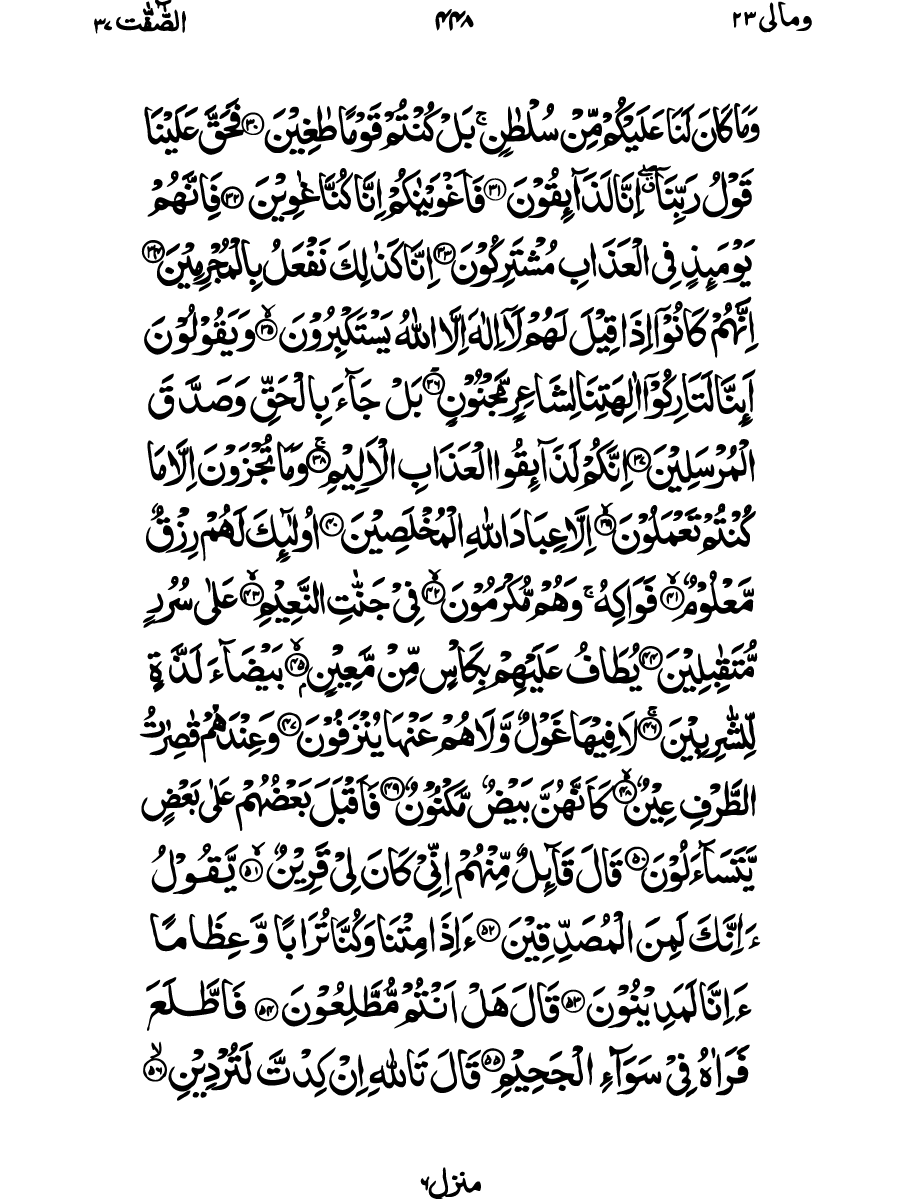 ومالی ۲۳ ۴۴۸ الصّٰٓفّٰت ۳۷
وَمَا كَانَ لَنَا عَلَيْكُمْ مِّنْ سُلْطٰنٍ ۚ بَلْ كُنْتُمْ قَوْمًا طٰغِيْنَ ﴿۳۰﴾ فَحَقَّ عَلَيْنَا
قَوْلُ رَبِّنَاۤ ۖ اِنَّا لَذَآئِقُوْنَ ﴿۳۱﴾ فَاَغْوَيْنٰكُمْ اِنَّا كُنَّا غٰوِيْنَ ﴿۳۲﴾ فَاِنَّهُمْ
يَوْمَئِذٍ فِى الْعَذَابِ مُشْتَرِكُوْنَ ﴿۳۳﴾ اِنَّا كَذٰلِكَ نَفْعَلُ بِالْمُجْرِمِيْنَ ﴿۳۴﴾
اِنَّهُمْ كَانُوْۤا اِذَا قِيْلَ لَهُمْ لَاۤ اِلٰهَ اِلَّا اللّٰهُ يَسْتَكْبِرُوْنَ ﴿۳۵﴾ وَيَقُوْلُوْنَ
اَئِنَّا لَتَارِكُوْۤا اٰلِهَتِنَا لِشَاعِرٍ مَّجْنُوْنٍ ﴿۳۶﴾ بَلْ جَآءَ بِالْحَقِّ وَصَدَّقَ
الْمُرْسَلِيْنَ ﴿۳۷﴾ اِنَّكُمْ لَذَآئِقُوا الْعَذَابِ الْاَلِيْمِ ﴿۳۸﴾ ۚ وَمَا تُجْزَوْنَ اِلَّا مَا
كُنْتُمْ تَعْمَلُوْنَ ﴿۳۹﴾ اِلَّا عِبَادَ اللّٰهِ الْمُخْلَصِيْنَ ﴿۴۰﴾ اُولٰٓئِكَ لَهُمْ رِزْقٌ
مَّعْلُوْمٌ ﴿۴۱﴾ فَوَاكِهُ ۚ وَهُمْ مُّكْرَمُوْنَ ﴿۴۲﴾ فِىْ جَنّٰتِ النَّعِيْمِ ﴿۴۳﴾ عَلٰى سُرُرٍ
مُّتَقٰبِلِيْنَ ﴿۴۴﴾ يُطَافُ عَلَيْهِمْ بِكَاْسٍ مِّنْ مَّعِيْنٍۭ ﴿۴۵﴾ بَيْضَآءَ لَذَّةٍ
لِّلشّٰرِبِيْنَ ﴿۴۶﴾ ۚ لَا فِيْهَا غَوْلٌ وَّلَا هُمْ عَنْهَا يُنْزَفُوْنَ ﴿۴۷﴾ وَعِنْدَهُمْ قٰصِرٰتُ
الطَّرْفِ عِيْنٌ ﴿۴۸﴾ كَاَنَّهُنَّ بَيْضٌ مَّكْنُوْنٌ ﴿۴۹﴾ فَاَقْبَلَ بَعْضُهُمْ عَلٰى بَعْضٍ
يَّتَسَآءَلُوْنَ ﴿۵۰﴾ قَالَ قَآئِلٌ مِّنْهُمْ اِنِّىْ كَانَ لِىْ قَرِيْنٌ ﴿۵۱﴾ يَّقُوْلُ
ءَاِنَّكَ لَمِنَ الْمُصَدِّقِيْنَ ﴿۵۲﴾ ءَاِذَا مِتْنَا وَكُنَّا تُرَابًا وَّعِظَامًا
ءَاِنَّا لَمَدِيْنُوْنَ ﴿۵۳﴾ قَالَ هَلْ اَنْتُمْ مُّطَّلِعُوْنَ ﴿۵۴﴾ فَاطَّلَعَ
فَرَاٰهُ فِىْ سَوَآءِ الْجَحِيْمِ ﴿۵۵﴾ قَالَ تَاللّٰهِ اِنْ كِدْتَّ لَتُرْدِيْنِ ﴿۵۶﴾
منزل ۶